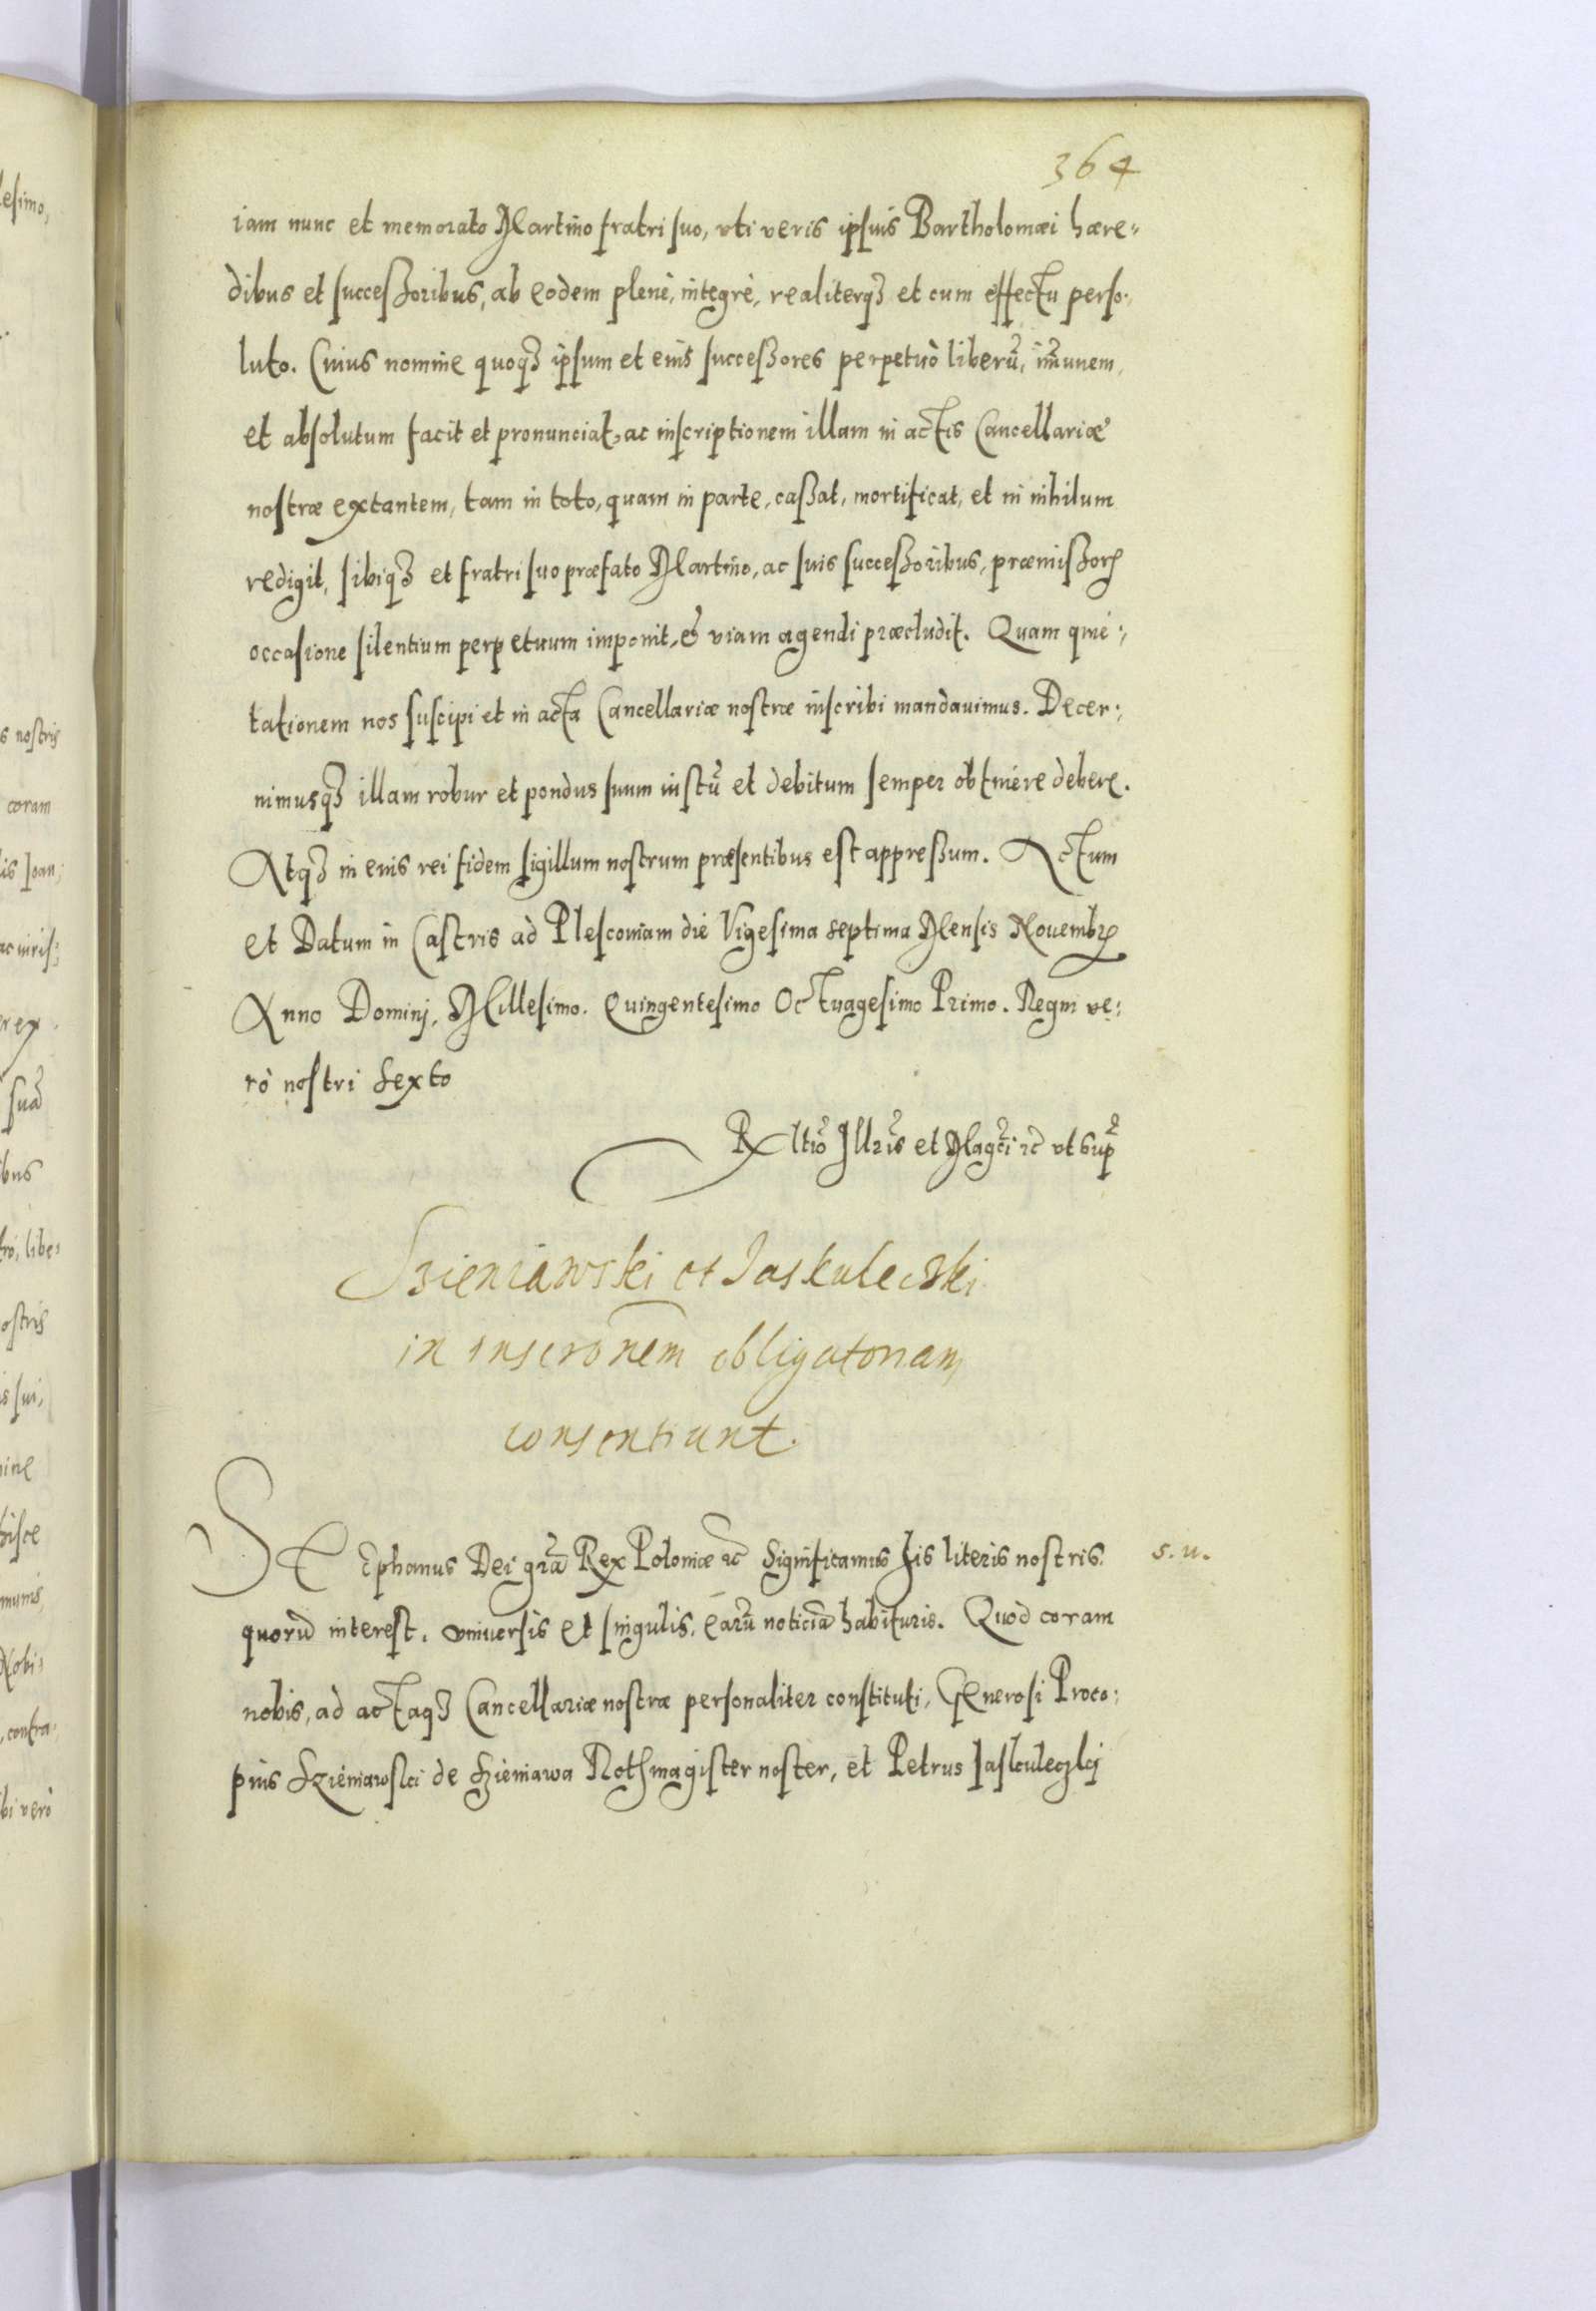 364
iam nunc et memorato Martino fratri suo, vti veris ipsius Bartholomæi hære-
dibus et successoribus, ab eodem plenè, integrè, realiterq3 et cum effectu perso-
luto. Cuius nomine quoq3 ipsum et eius successores perpetuò liberũ, im̃unem,
et absolutum facit et pronunciat, ac inscriptionem illam in actis Cancellariæ
nostræ extantem, tam in toto, quam in parte, cassat, mortificat, et in nihilum
redigit, sibiq3 et fratri suo præfato Martino, ac suis successoribus, præmissorꝶ
occasione silentium perpetuum imponit, & viam agendi præcludit. Quam quie-
tationem nos suscipi et in acta Cancellariæ nostræ inscribi mandauimus. Decer-
nimusq3 illam robur et pondus suum iustũ et debitum semper obtinere debere.
Atq3 in eius rei fidem sigillum nostrum præsentibus est appressum. Actum
et Datum in Castris ad Plescouiam die Vigesima septima Mensis Nouembrꝭ
Anno Dominj, Millesimo. Quingentesimo Octuagesimo Primo. Regni ve-
rò nostri Sexto
Rltio Illris et Magci rc vt sup
Szieniawski et Jaskulecski
in inscronem obligatoriam
consentiunt.
Stephanus Dei gr̃a Rex Poloniæ rc Significamus his literis nostris. s. u.
quorũ interest. vniuersis et singulis, earũ noticiã habituris. Quod coram
nobis, ad actaq3 Cancellariæ nostræ personaliter constituti, Generosi Proco-
pius Szieniawski de Szieniawa Rothmagister noster, et Petrus Jaskuleczkj